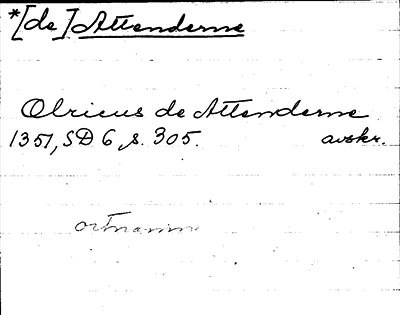 *[de] Attenderne
Olricus de Attenderne
1351, SD 6, s. 305. avskr.
ortnamn